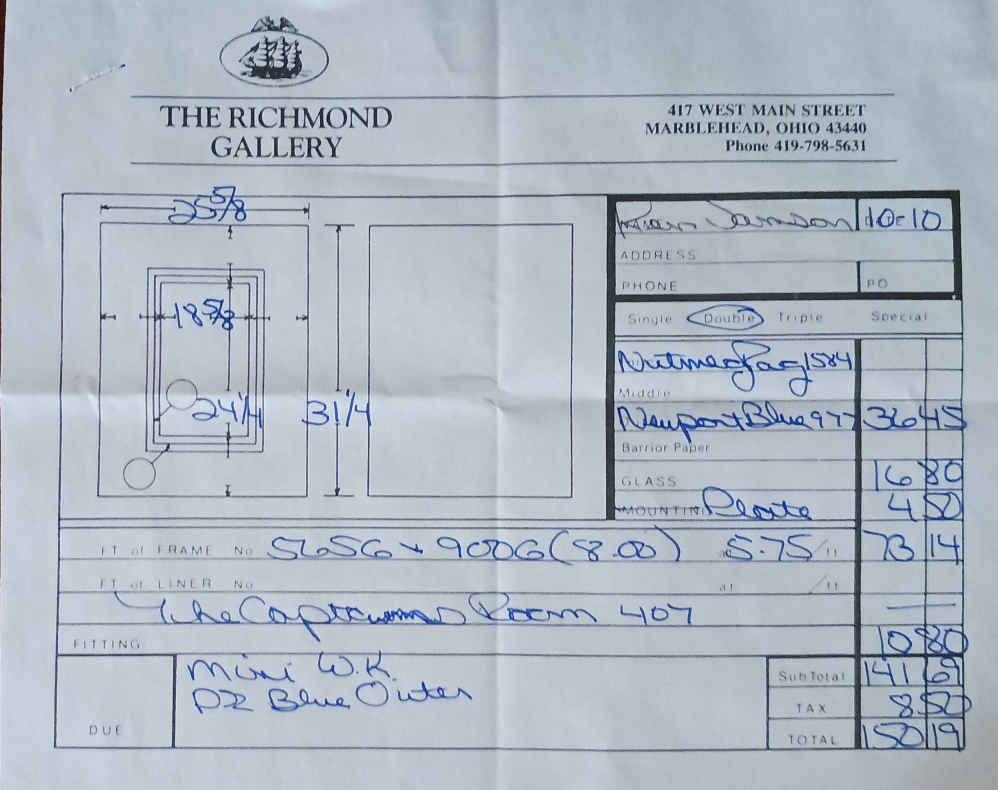 THE RICHMOND
GALLERY
417 WEST MAIN STREET
MARBLEHEAD, OHIO 43440
Phone 419-798-5631
25 5/8
18 5/8
24 1/4
31 1/4
10-10
ADDRESS
PHONE PO
Single Double Triple Special
1584
Middle
Newport Blue 977 36 45
Barrior Paper
GLASS 16 80
MOUNTIN 4 50
FT of FRAME No 5656 + 9006 (8.00) at 5.75/ft 73 14
FT of LINER No at /ft
Room 407 —
FITTING 10 80
Mini W.K.
Blue Outer
DUE
SubTotal 141 69
TAX 8 50
TOTAL 150 19